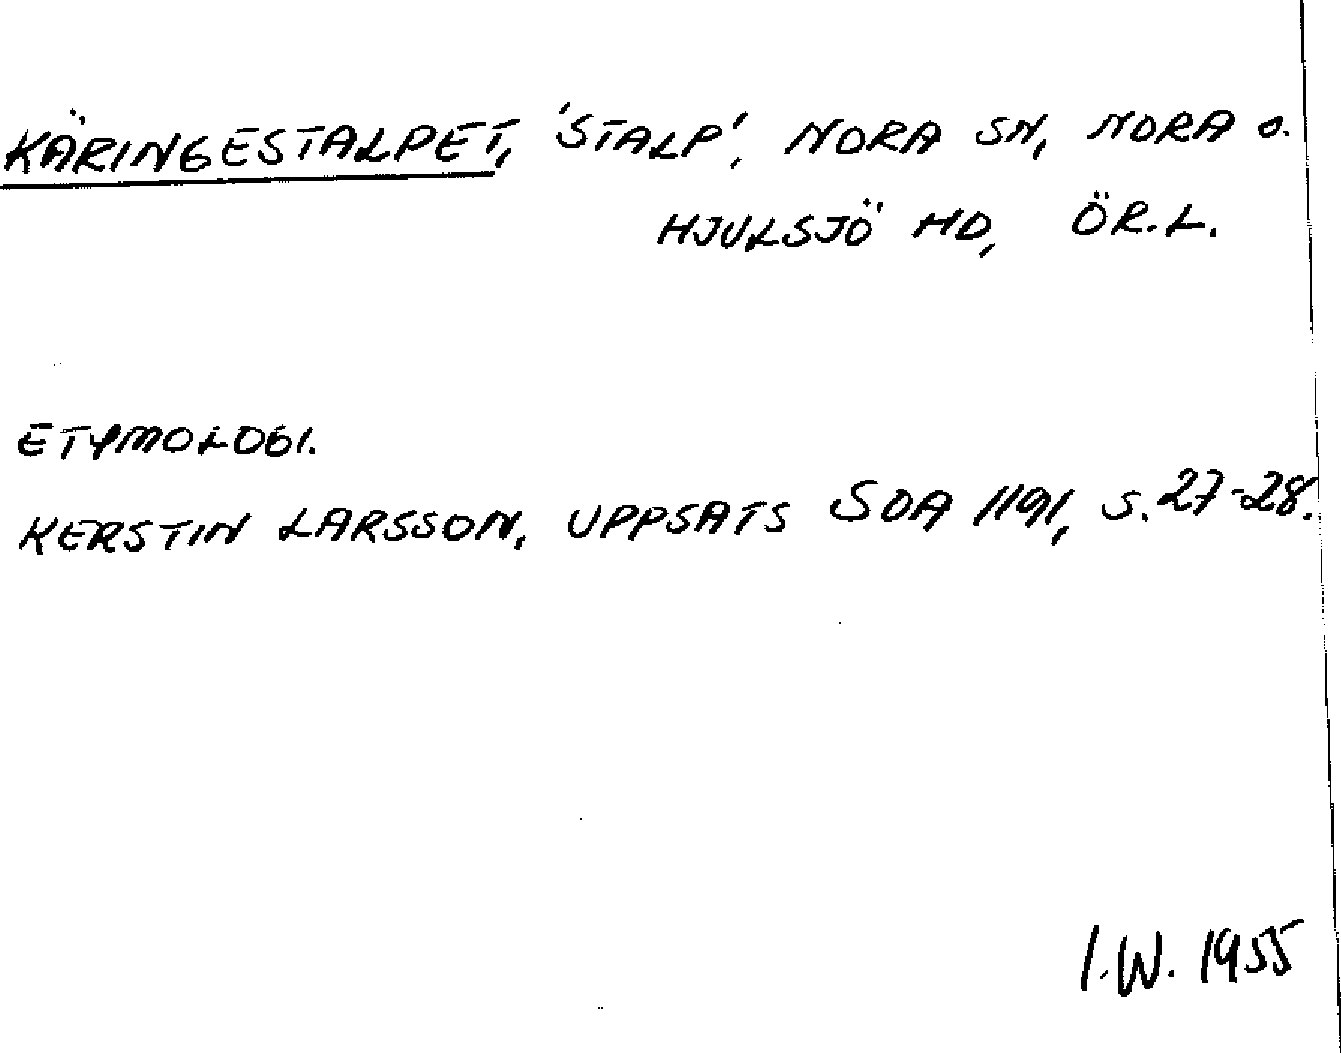 KÄRINGESTALPET, 'STALP', NORA SN, NORA O.
HJULSJÖ HD, ÖR.L.
ETYMOLOGI.
KERSTIN LARSSON, UPPSATS SOA 1191, S. 27-28.
I.W. 1955